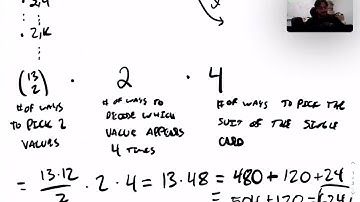 • 2,4
• 2,K
(13 2) · 2 · 4
# OF WAYS TO PICK 2 VALUES
# OF WAYS TO DECIDE WHICH VALUE APPEARS 4 TIMES
# OF WAYS TO PICK THE SUIT OF THE SINGLE CARD
= 13·12/2 · 2 · 4 = 13·48 = 480 + 120 + 24
= 504 + 120 = 624